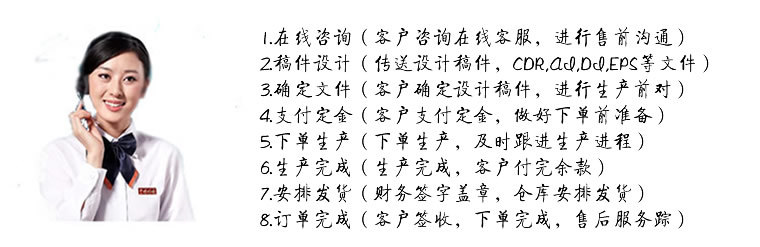 1.在线咨询（客户咨询在线客服，进行售前沟通）
2.稿件设计（传送设计稿件，CDR,AI,DI,EPS等文件）
3.确定文件（客户确定设计稿件，进行生产前对）
4.支付定金（客户支付定金，做好下单前准备）
5.下单生产（下单生产，及时跟进生产进程）
6.生产完成（生产完成，客户付完余款）
7.安排发货（财务签字盖章，仓库安排发货）
8.订单完成（客户签收，下单完成，售后服务踪）